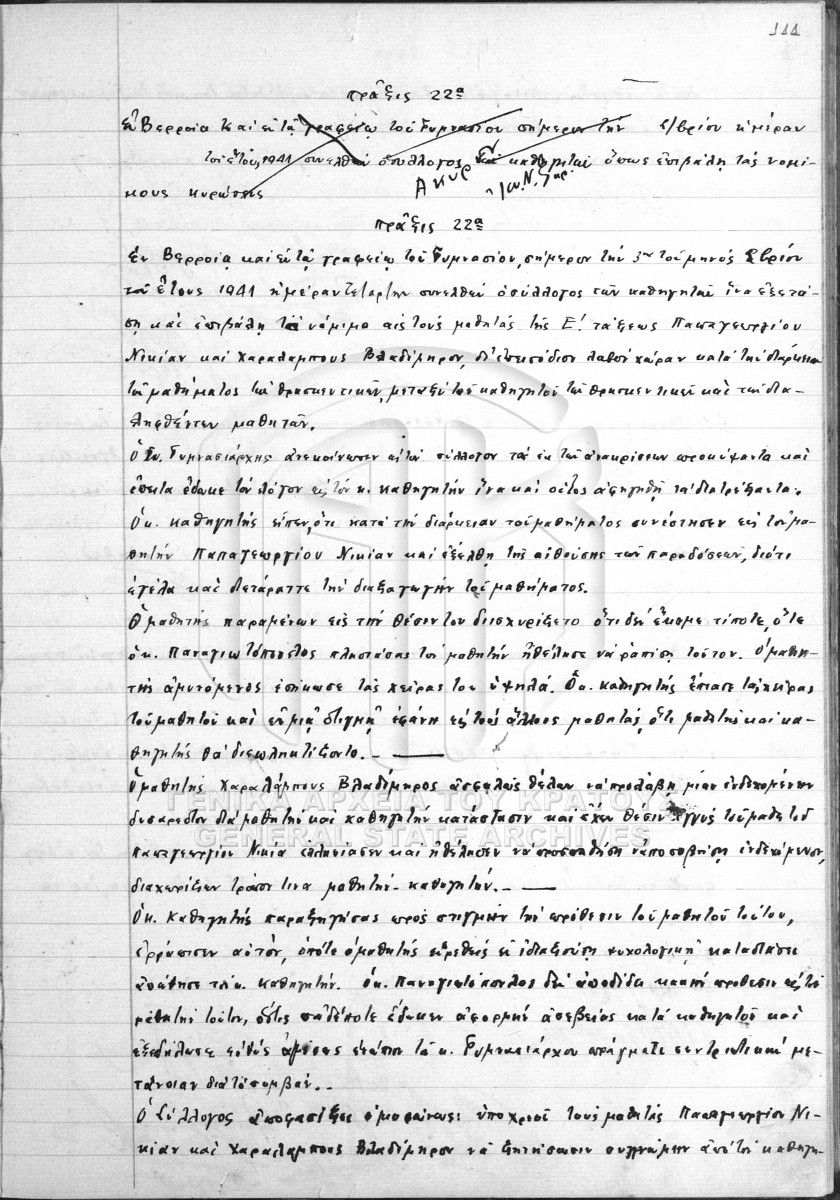 111
Πρᾶξις 22α
Ἐν Βερροίᾳ καὶ ἐν τῷ γραφείῳ τοῦ Γυμνασίου σήμερον τὴν 8/βρίου ἡμέραν
τοῦ ἔτους 1941 συνελθὼν ὁ σύλλογος τῶν καθηγητῶν ὅπως ἐπιβάλῃ τὰς νομί-
μους κυρώσεις
Ἄκυρ
Πρᾶξις 22α
Ἐν Βερροίᾳ καὶ ἐν τῷ γραφείῳ τοῦ Γυμνασίου, σήμερον τὴν 3ην τοῦ μηνὸς βρίου
τοῦ ἔτους 1941 ἡμέραν Τετάρτην συνελθὼν ὁ σύλλογος τῶν καθηγητῶν ἵνα ἐξετά-
σῃ καὶ ἐπιβάλῃ τὰ νόμιμα εἰς τοὺς μαθητὰς τῆς Ε΄. τάξεως Παπαγεωργίου
Νικίαν καὶ Χαραλάμπους Βλαδίμηρον, δι' ἐπεισόδιον λαβὸν χώραν κατὰ τὴν διάρκειαν
τοῦ μαθήματος τῶν θρησκευτικῶν, μεταξὺ τοῦ καθηγητοῦ τῶν θρησκευτικῶν καὶ τῶν δια-
ληφθέντων μαθητῶν.
Ὁ Γυμνασιάρχης ἀνεκοίνωσεν εἰς τὸν σύλλογον τὰ ἐκ τῶν ἀνακρίσεων προκύψαντα καὶ
ἔπειτα ἔδωκε τὸν λόγον εἰς τὸν κ. καθηγητὴν ἵνα καὶ οὗτος ἀφηγηθῇ τὰ διατρέξαντα.
Ὁ κ. καθηγητὴς εἶπεν, ὅτι κατὰ τὴν διάρκειαν τοῦ μαθήματος συνέστησεν εἰς τὸν μα-
θητὴν Παπαγεωργίου Νικίαν καὶ ἐξέλθῃ τῆς αἰθούσης τῶν παραδόσεων, διότι
ἐγέλα καὶ διετάραττε τὴν διεξαγωγὴν τοῦ μαθήματος.
Ὁ μαθητὴς παραμένων εἰς τὴν θέσιν του διισχυρίζετο ὅτι δὲν ἔκαμε τίποτε, ὅτε
ὁ κ. Παναγιωτόπουλος πλησιάσας τὸν μαθητὴν ἠθέλησε νὰ ῥαπίσῃ τοῦτον. Ὁ μαθη-
τὴς ἀμυνόμενος ἐσήκωσε τὰς χεῖρας του ὑψηλά. Ὁ κ. καθηγητὴς ἔπιασε τὰς χεῖρας
τοῦ μαθητοῦ καὶ ἐν μιᾷ στιγμῇ ἐφάνη εἰς τοὺς ἄλλους μαθητάς, ὅτι μαθητὴς καὶ κα-
θηγητὴς θὰ διεπληκτίζοντο. –
Ὁ μαθητὴς Χαραλάμπους Βλαδίμηρος ἀσφαλῶς θέλων νὰ προλάβῃ μίαν ἐνδεχομένην
δυσάρεστον διὰ μαθητὴν καὶ καθηγητὴν κατάστασιν καὶ ἔχων θέσιν ἐγγὺς τοῦ μαθητοῦ
Παπαγεωργίου Νικία ἐπλησίασεν καὶ ἠθέλησεν νὰ προσπαθήσῃ ν' ἀποσοβήσῃ ἐνδεχόμενον,
διαχωρίζων τρόπον τινα μαθητὴν - καθηγητήν. –
Ὁ κ. καθηγητὴς παρεξηγήσας πρὸς στιγμὴν τὴν πρόθεσιν τοῦ μαθητοῦ τούτου,
ἐρράπισεν αὐτόν, ὁπότε ὁ μαθητὴς εὑρεθεὶς ἐν ἰδιαζούσῃ ψυχολογικῇ καταστάσει
ἀπώθησε τὸν κ. καθηγητήν. Ὁ κ. Παναγιωτόπουλος δὲν ἀποδίδει κακὴν πρόθεσιν εἰς τὸν
μαθητὴν τοῦτον, ὅστις οὐδέποτε ἔδωκεν ἀφορμὴν ἀσεβείας κατὰ καθηγητοῦ καὶ
ἐξεδήλωσε εὐθὺς ἀμέσως ἐνώπιον τοῦ κ. Γυμνασιάρχου πράγματι συντριπτικὴν με-
τάνοιαν διὰ τὸ συμβάν. .
Ὁ Σύλλογος ἀποφασίζει ὁμοφώνως: ὑποχρεοῖ τοὺς μαθητὰς Παπαγεωργίου Νι-
κίαν καὶ Χαραλάμπους Βλαδίμηρον νὰ ζητήσωσιν συγγνώμην ἀπὸ τὸν καθηγη-
ΓΕΝΙΚΑ ΑΡΧΕΙΑ ΤΟΥ ΚΡΑΤΟΥΣ
GENERAL STATE ARCHIVES